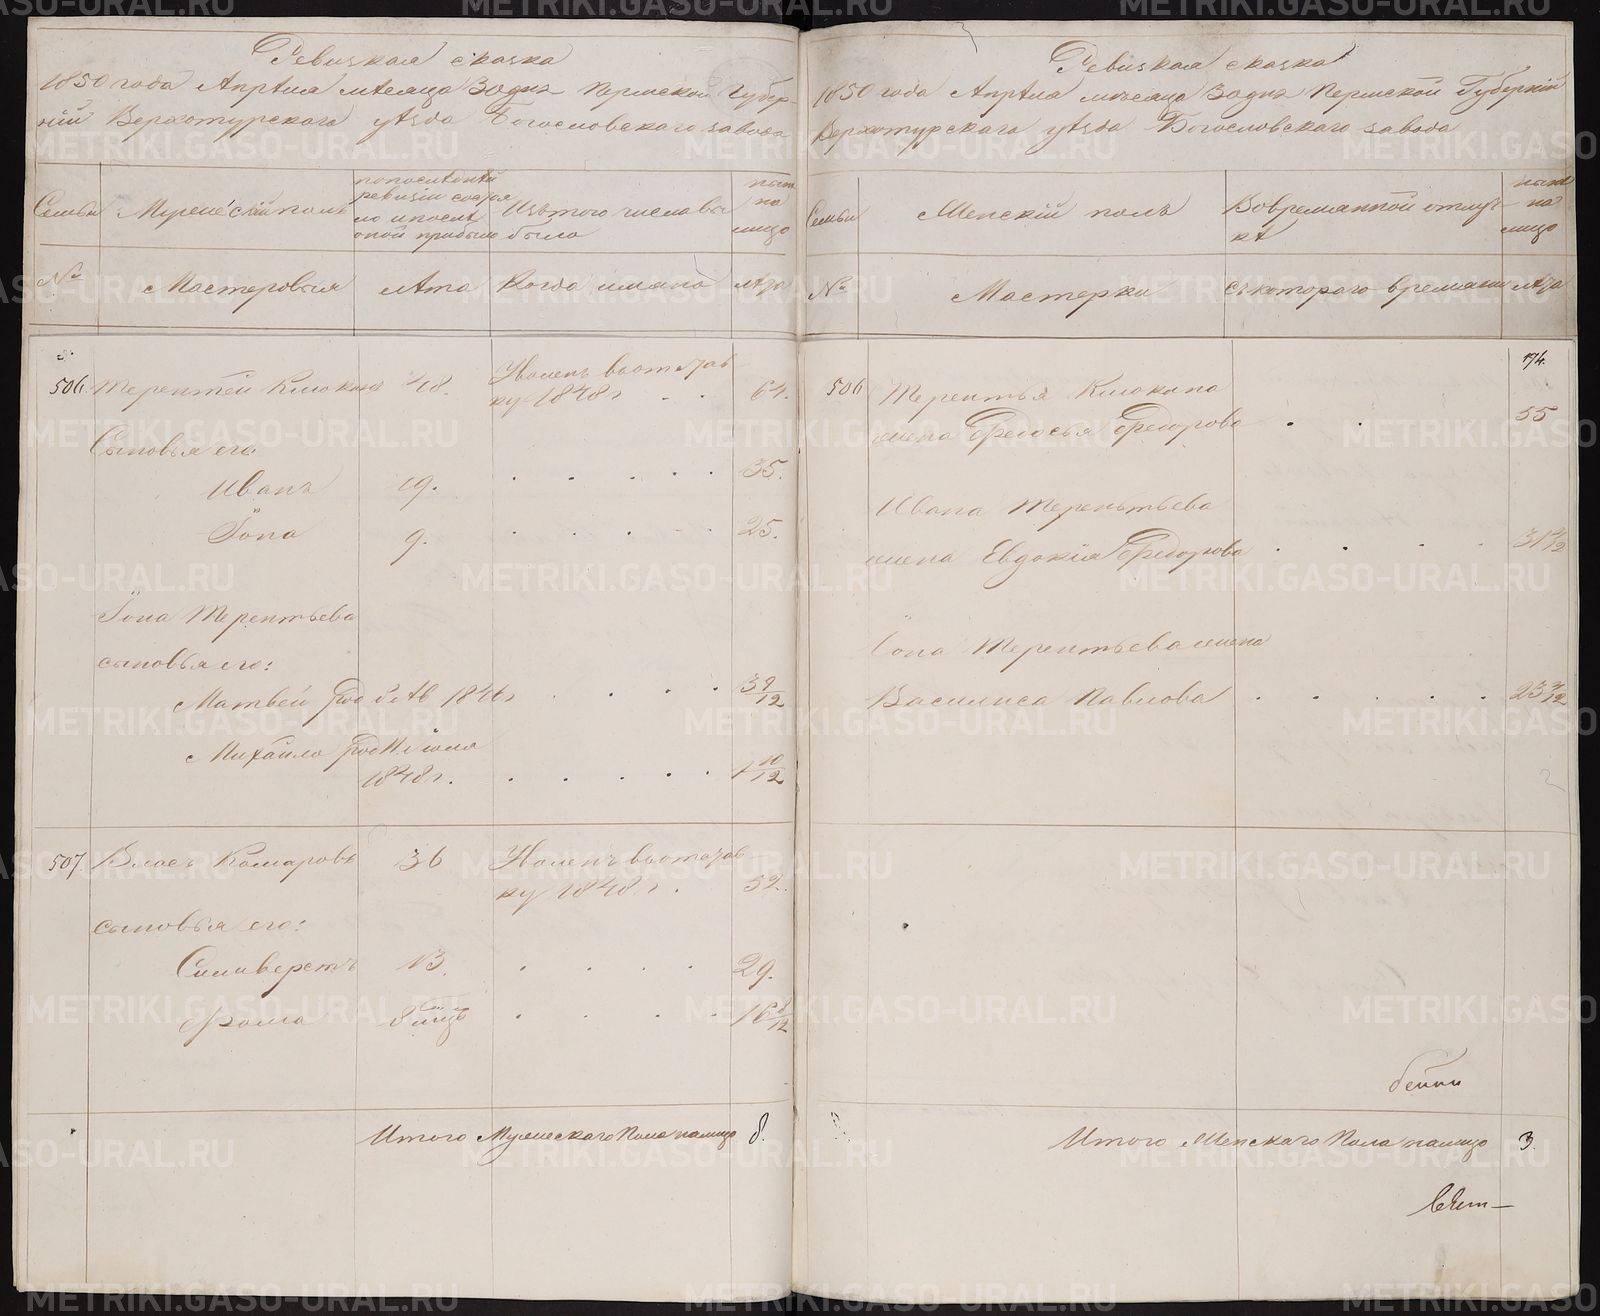 Ревизкая сказка
1850 года Апрѣля мѣсяца 30 дня Пермской Губер-
ніи Верхотурскаго уѣзда Богословскаго завода
Семьи
Мужескій полъ
по последней
ревизіи
Изъ того числа вы
было
ныне
на
лицо
№
Мастеровыя
Лѣта
Когда имяно
Лѣта
506.
Терентей Клюкинъ
48.
Уволенъ въ отстав
ку 1848 г.
64.
Сыновья его:
Иванъ
19.
35.
Іона
9.
25.
Іона Терентьева
сыновья его:
Матвей
1846 г
3 9/12
Михайло
1848 г.
1 10/12
507.
Власъ Комаровъ
36
Уволенъ въ отстав
ку 1848 г.
52.
сыновья его:
Силиверстъ
13.
29.
Фома
8 мцъ
16 8/12
Итого Мужескаго Пола налицо
8.
Ревизкая сказка
1850 года Апрѣла мѣсяца 30 дня Пермской Губерніи
Верхотурскаго уѣзда Богословскаго завода
Семьи
Женскій полъ
Вовременной отлуч-
кѣ
ныне
на
лицо
№
Мастерки
Съ котораго времени
лѣта
174.
506
Терентья Клюкина
жена Федосья Федорова
55
Ивана Терентьева
жена Евдокія Федорова
Іона Терентьева жена
Василиса Павлова
Итого Женскаго Пола налицо
3.
METRIKI.GASO-URAL.RU